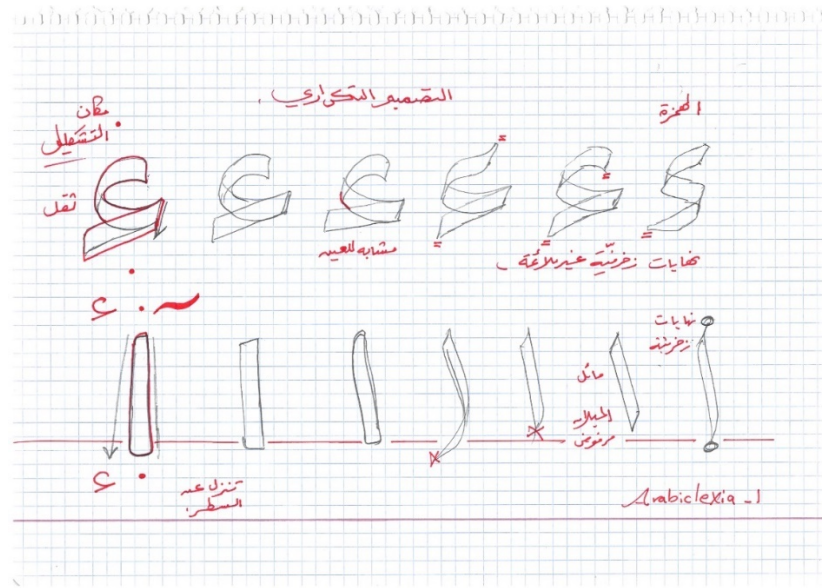 التصميم التكراري .
الهمزة
مكان
التشكيل
ثقل
مشابه للعين
نهايات زخرفيّة غير ملائمة
ء . ~
نهايات
زخرفية
مائل
الميلان
مرفوض
ء .
تنزل عن
السطر.
Arabiclexia_1